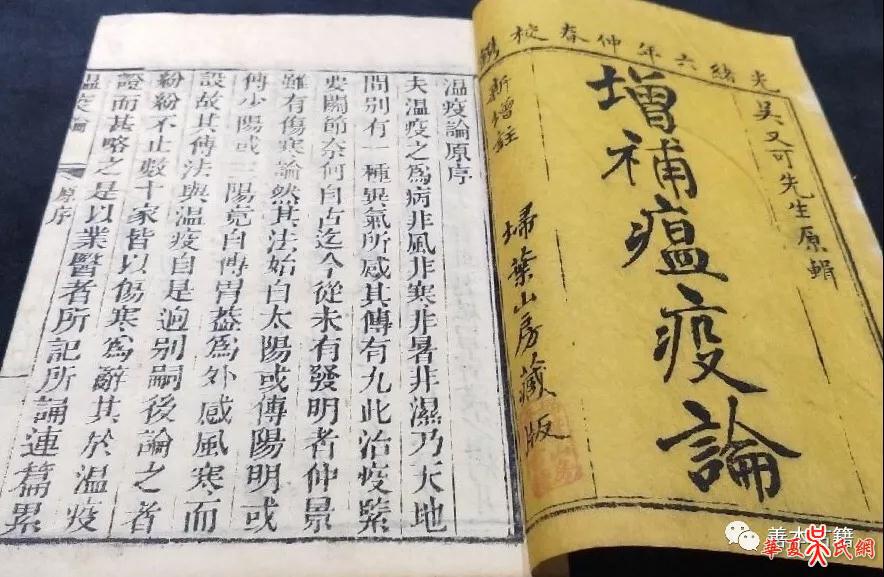 光緒六年仲春校鐫
吳又可先生原輯
增補瘟疫論
新增註
掃葉山房藏版
温疫論原序
夫温疫之爲病非風非寒非暑非濕乃天地
間别有一種異氣所感其傳有九此治疫緊
要關節奈何自古迄今從未有發明者仲景
雖有傷寒論然其法始自太陽或傳陽明或
傳少陽或三陽竟自傳胃葢爲外感風寒而
設故其傳法與温疫自是迥别嗣後論之者
紛紛不止數十家皆以傷寒爲辭其於温疫
證而甚畧之是以業醫者所記所誦連篇累
温疫論 原序
善本古籍
華夏吴氏網